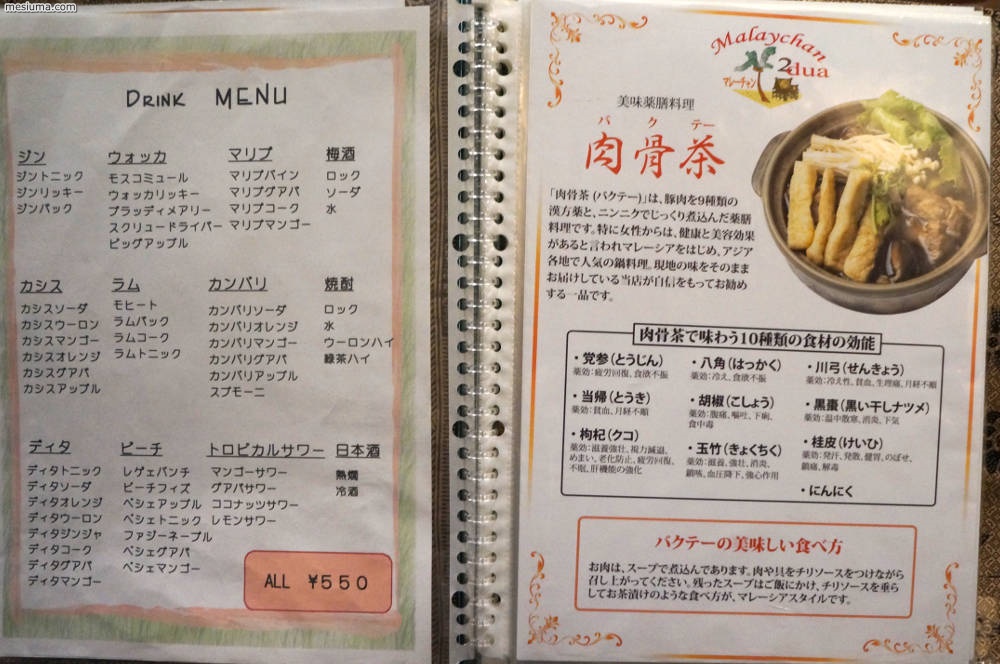 mesiuma.com
DRINK MENU
ジン
ジントニック
ジンリッキー
ジンバック
ウォッカ
モスコミュール
ウォッカリッキー
ブラッディメアリー
スクリュードライバー
ビッグアップル
マリブ
マリブパイン
マリブグアバ
マリブコーク
マリブマンゴー
梅酒
ロック
ソーダ
水
カシス
カシスソーダ
カシスウーロン
カシスマンゴー
カシスオレンジ
カシスグアバ
カシスアップル
ラム
モヒート
ラムバック
ラムコーク
ラムトニック
カンパリ
カンパリソーダ
カンパリオレンジ
カンパリマンゴー
カンパリグアバ
カンパリアップル
スプモーニ
焼酎
ロック
水
ウーロンハイ
緑茶ハイ
ディタ
ディタトニック
ディタソーダ
ディタオレンジ
ディタウーロン
ディタジンジャ
ディタコーク
ディタグアバ
ディタマンゴー
ピーチ
レゲェパンチ
ピーチフィズ
ペシェアップル
ペシェトニック
ファジーネーブル
ペシェグアバ
ペシェマンゴー
トロピカルサワー
マンゴーサワー
グアバサワー
ココナッツサワー
レモンサワー
日本酒
熱燗
冷酒
ALL ¥550
Malaychan
マレーチャン
2dua
美味薬膳料理
バクテー
肉骨茶
「肉骨茶(バクテー)」は、豚肉を9種類の
漢方薬と、ニンニクでじっくり煮込んだ薬膳
料理です。特に女性からは、健康と美容効果
があると言われマレーシアをはじめ、アジア
各地で人気の鍋料理。現地の味をそのまま
お届けしている当店が自信をもってお勧め
する一品です。
肉骨茶で味わう10種類の食材の効能
・党参(とうじん)
薬効:疲労回復、食欲不振
・八角(はっかく)
薬効:冷え、食欲不振
・川弓(せんきょう)
薬効:冷え性、貧血、生理痛、月経不順
・当帰(とうき)
薬効:貧血、月経不順
・胡椒(こしょう)
薬効:腹痛、嘔吐、下痢、
食中毒
・黒棗(黒い干しナツメ)
薬効:温中散寒、消炎、下気
・枸杞(クコ)
薬効:滋養強壮、視力減退、
めまい、老化防止、疲労回復、
不眠、肝機能の強化
・玉竹(ぎょくちく)
薬効:滋養、強壮、消炎、
鎮咳、血圧降下、強心作用
・桂皮(けいひ)
薬効:発汗、発散、健胃、のぼせ、
鎮痛、解毒
・にんにく
バクテーの美味しい食べ方
お肉は、スープで煮込んであります。肉や具をチリソースをつけながら
召し上がってください。残ったスープはご飯にかけ、チリソースを垂ら
してお茶漬けのような食べ方が、マレーシアスタイルです。